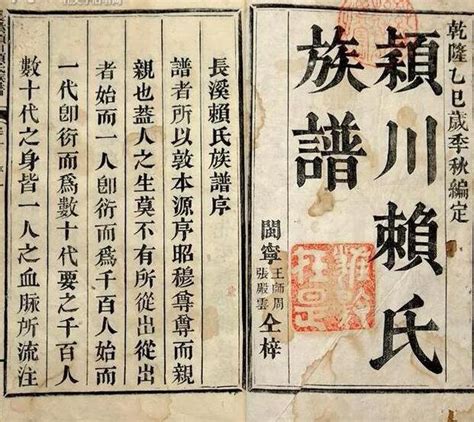 乾隆乙巳歲季秋編定
穎川賴氏
族譜
閩寧
王師周
張殿雲
仝梓
長溪賴氏族譜序
譜者所以敦本源序昭穆尊尊而親
親也蓋人之生莫不有所從出從出
者始而一人卽衍而爲千百人始而
一代卽衍而爲數十代要之千百人
數十代之身皆一人之血脉所流注